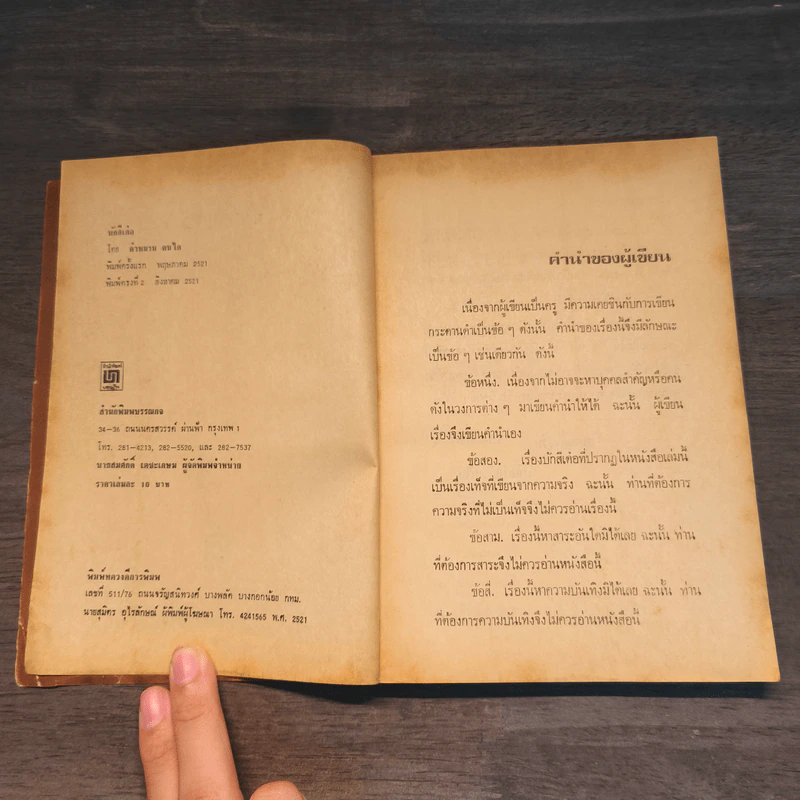 บักสีเด๋อ
โดย คำหมาน คนไค
พิมพ์ครั้งแรก พฤษภาคม 2521
พิมพ์ครั้งที่ 2 สิงหาคม 2521
สำนักพิมพ์บรรณกิจ
34-36 ถนนนครสวรรค์ ผ่านฟ้า กรุงเทพ 1
โทร. 281-4213, 282-5520, และ 282-7537
นายสมศักดิ์ เตชะเกษม ผู้จัดพิมพ์จำหน่าย
ราคาเล่มละ 10 บาท
พิมพ์ที่ดวงดีการพิมพ์
เลขที่ 511/76 ถนนจรัญสนิทวงศ์ บางพลัด บางกอกน้อย กทม.
นายสุมิตร อุไรลักษณ์ ผู้พิมพ์ผู้โฆษณา โทร. 4241565 พ.ศ. 2521
คำนำของผู้เขียน
เนื่องจากผู้เขียนเป็นครู มีความเคยชินกับการเขียน
กระดานดำเป็นข้อ ๆ ดังนั้น คำนำของเรื่องนี้จึงมีลักษณะ
เป็นข้อ ๆ เช่นเดียวกัน ดังนี้
ข้อหนึ่ง. เนื่องจากไม่อาจจะหาบุคคลสำคัญหรือคน
ดังในวงการต่าง ๆ มาเขียนคำนำให้ได้ ฉะนั้น ผู้เขียน
เรื่องจึงเขียนคำนำเอง
ข้อสอง. เรื่องบักสีเด๋อที่ปรากฏในหนังสือเล่มนี้
เป็นเรื่องเท็จที่เขียนจากความจริง ฉะนั้น ท่านที่ต้องการ
ความจริงที่ไม่เป็นเท็จจึงไม่ควรอ่านเรื่องนี้
ข้อสาม. เรื่องนี้หาสาระอันใดมิได้เลย ฉะนั้น ท่าน
ที่ต้องการสาระจึงไม่ควรอ่านหนังสือนี้
ข้อสี่. เรื่องนี้หาความบันเทิงมิได้เลย ฉะนั้น ท่าน
ที่ต้องการความบันเทิงจึงไม่ควรอ่านหนังสือนี้